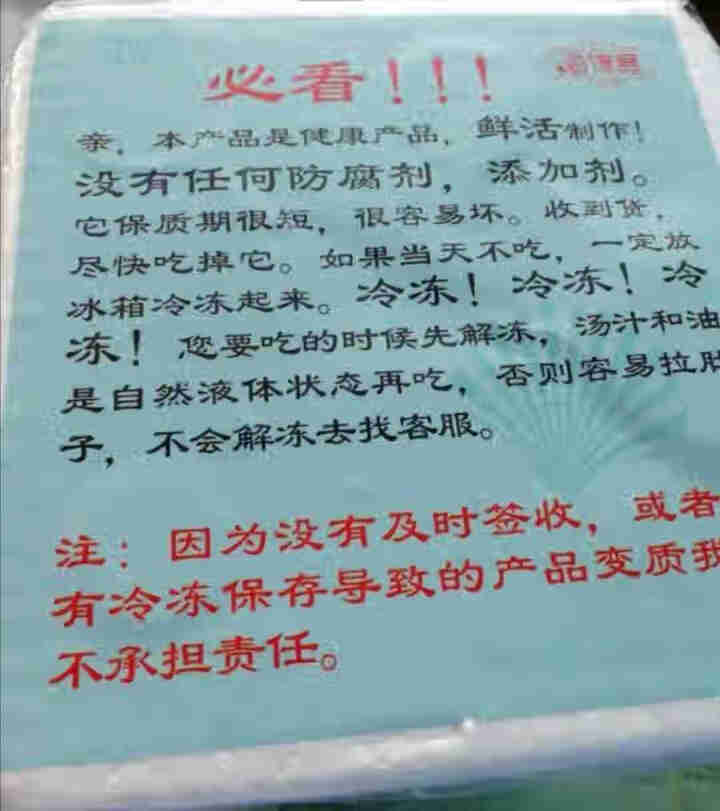 必看!!!
亲，本产品是健康产品，鲜活制作!
没有任何防腐剂，添加剂。
它保质期很短，很容易坏。收到货，
尽快吃掉它。如果当天不吃，一定放
冰箱冷冻起来。冷冻！冷冻！冷
冻！您要吃的时候先解冻，汤汁和油
是自然液体状态再吃，否则容易拉肚
子，不会解冻去找客服。
注：因为没有及时签收，或者
有冷冻保存导致的产品变质我
不承担责任。